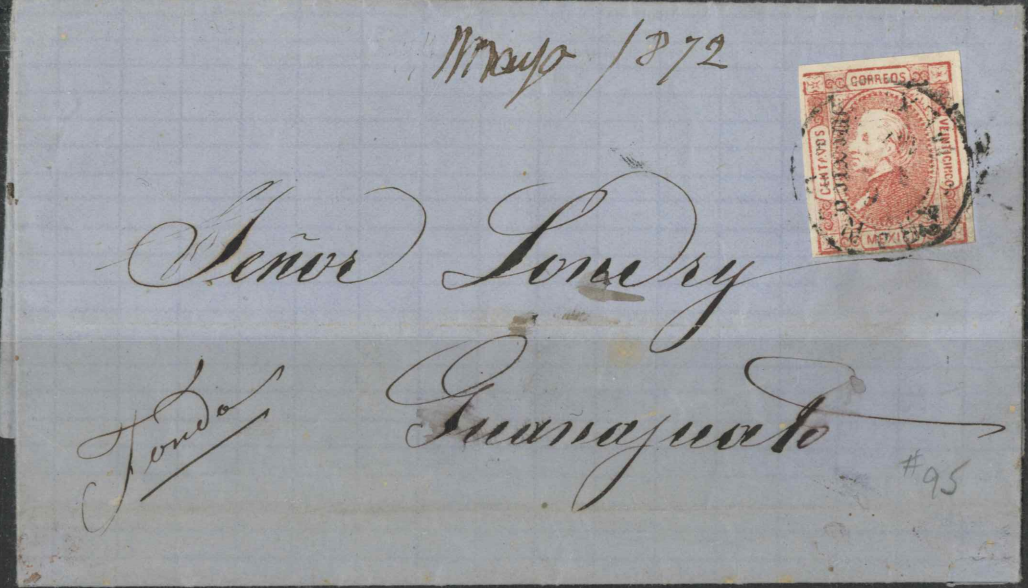 Mayo 1872
CORREOS
CENTAVOS
VEINTICINCO
MEXICO
Señor Londry
Guanajuato
Fonda
#95